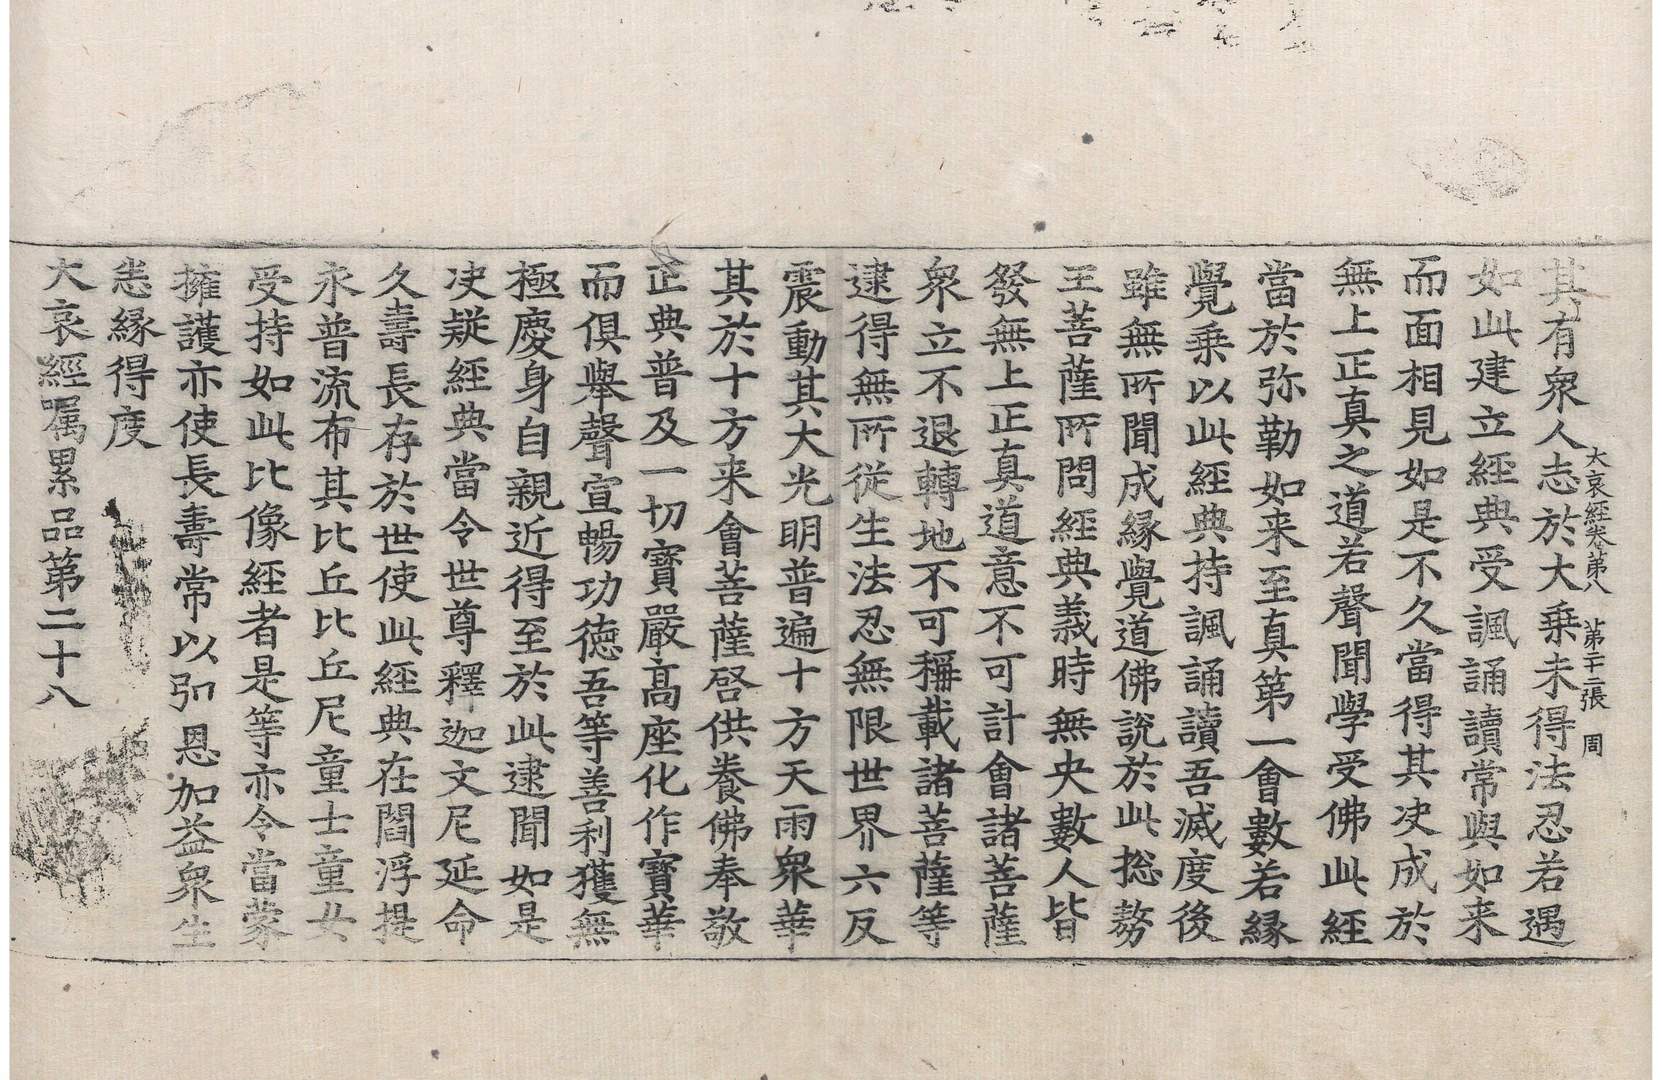 大哀經卷第八　第二十二張　周
其有衆人志於大乗未得法忍若遇
如此建立經典受諷誦讀常與如来
而面相見如是不久當得其决成於
無上正真之道若聲聞學受佛此經
當於弥勒如来至真第一會數若縁
覺乗以此經典持諷誦讀吾滅度後
雖無所聞成縁覺道佛說於此揔㔟
王菩薩所問經典義時無央數人皆
發無上正真道意不可計會諸菩薩
衆立不退轉地不可稱載諸菩薩等
逮得無所從生法忍無限世界六反
震動其大光明普遍十方天雨衆華
其於十方来會菩薩啓供養佛奉敬
正典普及一切寶嚴高座化作寶華
而俱舉聲宣暢功德吾等善利獲無
極慶身自親近得至於此逮聞如是
决疑經典當令世尊釋迦文尼延命
久壽長存於世使此經典在閻浮提
永普流布其比丘比丘尼童士童女
受持如此比像經者是等亦令當蒙
擁護亦使長壽常以弘恩加益衆生
恙縁得度
大哀經嘱累品第二十八